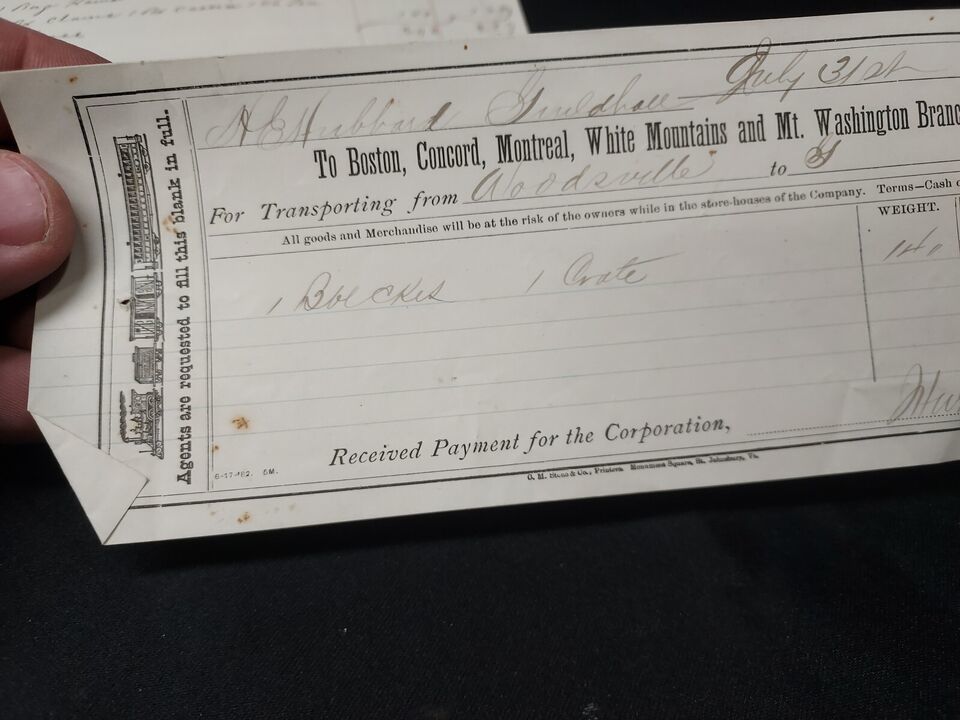 H E Hubbard Guildhall July 31st
To Boston, Concord, Montreal, White Mountains and Mt. Washington Branc
For Transporting from Woodsville to G
All goods and Merchandise will be at the risk of the owners while in the store-houses of the Company. Terms—Cash o
WEIGHT.
1 1 Crate 140
Received Payment for the Corporation,
6-17-'82. 5M.
Printers. Monument Square, St. Johnsbury, Vt.
Agents are requested to fill this blank in full.